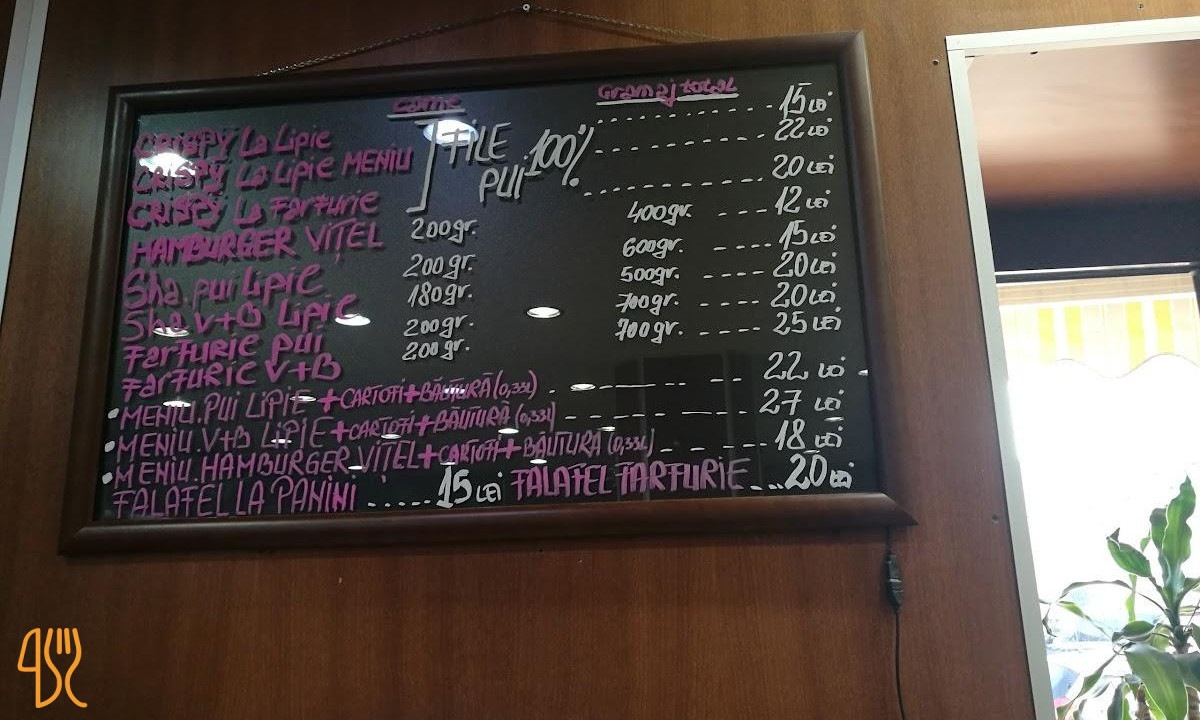 Carne Gramaj total
CRISPY La Lipie ] FILE PUI 100% 15 Lei
CRISPY La Lipie MENIU 22 Lei
CRISPY La Farfurie 20 Lei
HAMBURGER VIȚEL 200gr. 400gr. 12 Lei
Sha. pui Lipie 200gr. 600gr. 15 Lei
Sha V+B Lipie 180gr. 500gr. 20 Lei
Farfurie pui 200gr. 700gr. 20 Lei
Farfurie V+B 200gr. 700gr. 25 Lei
• MENIU. PUI LIPIE + CARTOFI + BĂUTURĂ (0,33L) 22 Lei
• MENIU. V+B LIPIE + CARTOFI + BĂUTURĂ (0,33L) 27 Lei
• MENIU. HAMBURGER VIȚEL + CARTOFI + BĂUTURĂ (0,33L) 18 Lei
FALAFEL LA PANINI ...... 15 Lei FALAFEL FARFURIE ... 20 Lei